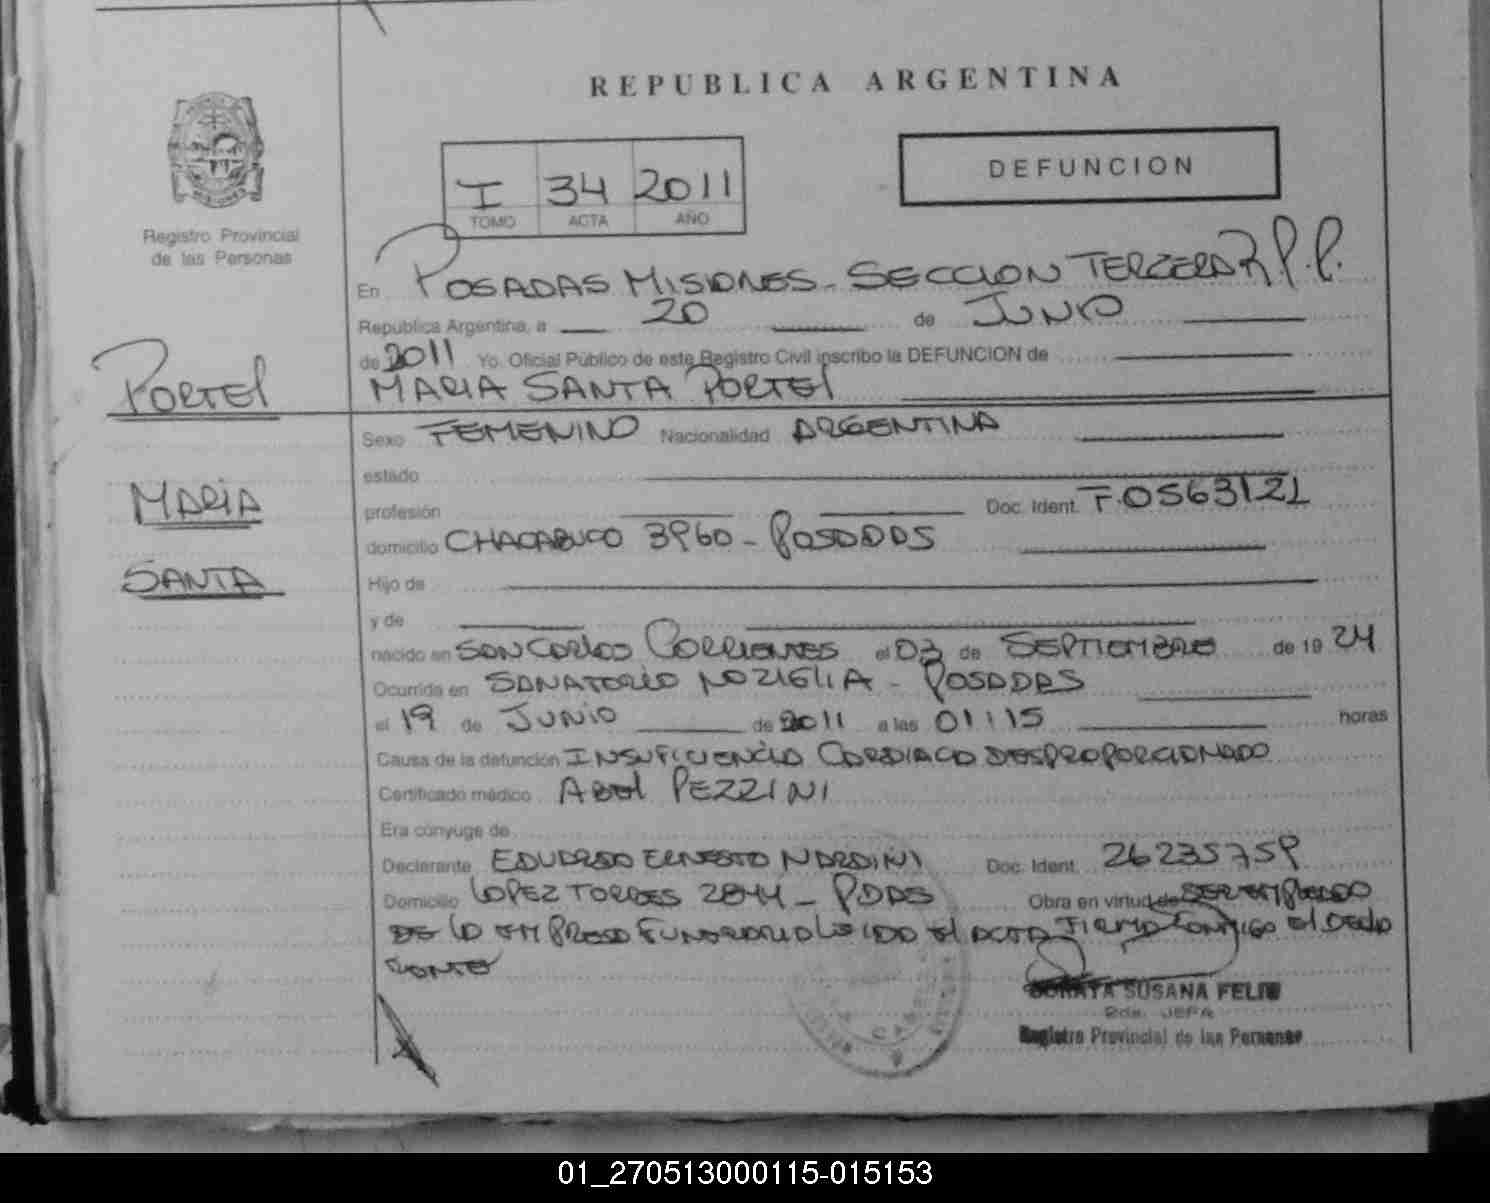 REPUBLICA ARGENTINA
Registro Provincial
de las Personas
I 34 2011
TOMO ACTA AÑO
DEFUNCION
PORTEL
MARIA
SANTA
En POSADAS MISIONES - SECCION TERCERA R.P.P.
Republica Argentina, a 20 de JUNIO
de 2011 Yo, Oficial Público de este Registro Civil inscribo la DEFUNCION de
MARIA SANTA PORTEL
Sexo FEMENINO Nacionalidad ARGENTINA
estado
profesión Doc. Ident. F.0563121
domicilio CHACABUCO 3960 - POSADAS
Hijo de
y de
nacido en SAN CARLOS CORRIENTES el 03 de SEPTIEMBRE de 19 24
Ocurrida en SANATORIO NOZIGLIA - POSADAS
el 19 de JUNIO de 2011 a las 01:15 horas
Causa de la defunción INSUFICIENCIA CARDIACA DESPROPORCIONADO
Certificado médico ABEL PEZZINI
Era cónyuge de
Declarante EDUARDO ERNESTO NARDINI Doc. Ident. 26235759
Domicilio LOPEZ TORRES 2844 - PDAS Obra en virtud de SER EMPLEADO
DE LA EMPRESA FUNERARIA LEIDO EL ACTA FIRMA CONMIGO EL DECLA
RANTE
SORAYA SUSANA FELIU
JEFA
Registro Provincial de las Personas
01_270513000115-015153